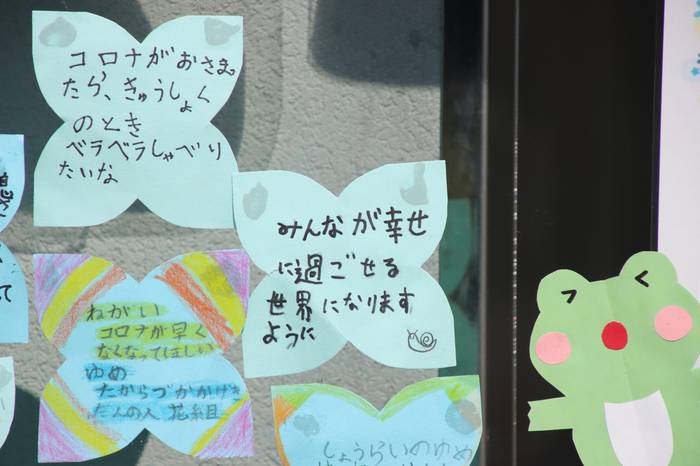 コロナがおさまっ
たら、きゅうしょく
のとき
ベラベラしゃべり
たいな
みんなが幸せ
に過ごせる
世界になります
ように
ねがい
コロナが早く
なくなってほしい
ゆめ
たからづかかげき
だんの人 花組
しょうらいのゆめ